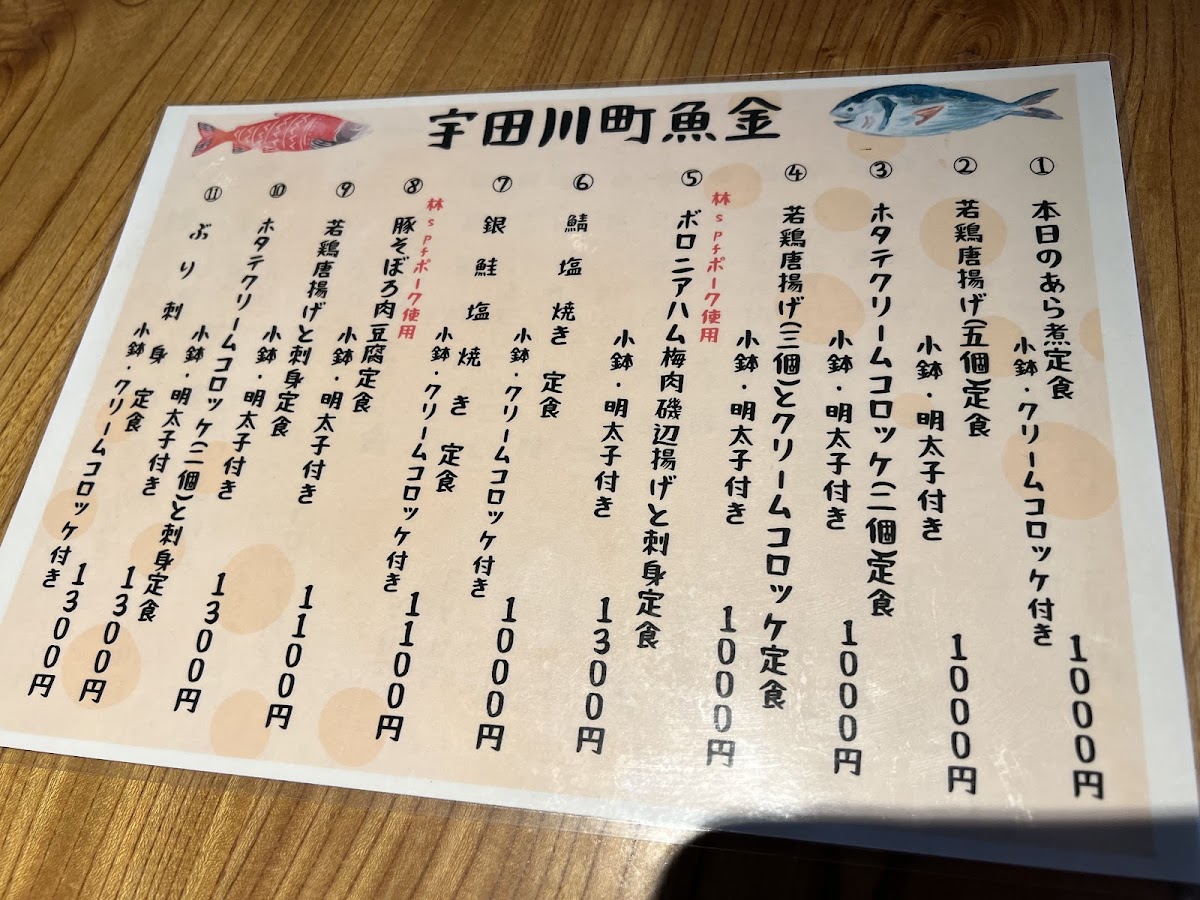 宇田川町魚金
① 本日のあら煮定食
小鉢・クリームコロッケ付き 1000円
② 若鶏唐揚げ(五個)定食
小鉢・明太子付き 1000円
③ ホタテクリームコロッケ(二個)定食
小鉢・明太子付き 1000円
④ 若鶏唐揚げ(三個)とクリームコロッケ定食
小鉢・明太子付き 1000円
林spfポーク使用
⑤ ボロニアハム梅肉磯辺揚げと刺身定食
小鉢・明太子付き 1300円
⑥ 鯖塩焼き定食
小鉢・クリームコロッケ付き 1000円
⑦ 銀鮭塩焼き定食
小鉢・クリームコロッケ付き 1100円
林spfポーク使用
⑧ 豚そぼろ肉豆腐定食
小鉢・明太子付き 1100円
⑨ 若鶏唐揚げと刺身定食
小鉢・明太子付き 1300円
⑩ ホタテクリームコロッケ(二個)と刺身定食
小鉢・明太子付き 1300円
⑪ ぶり刺身定食
小鉢・クリームコロッケ付き 1300円